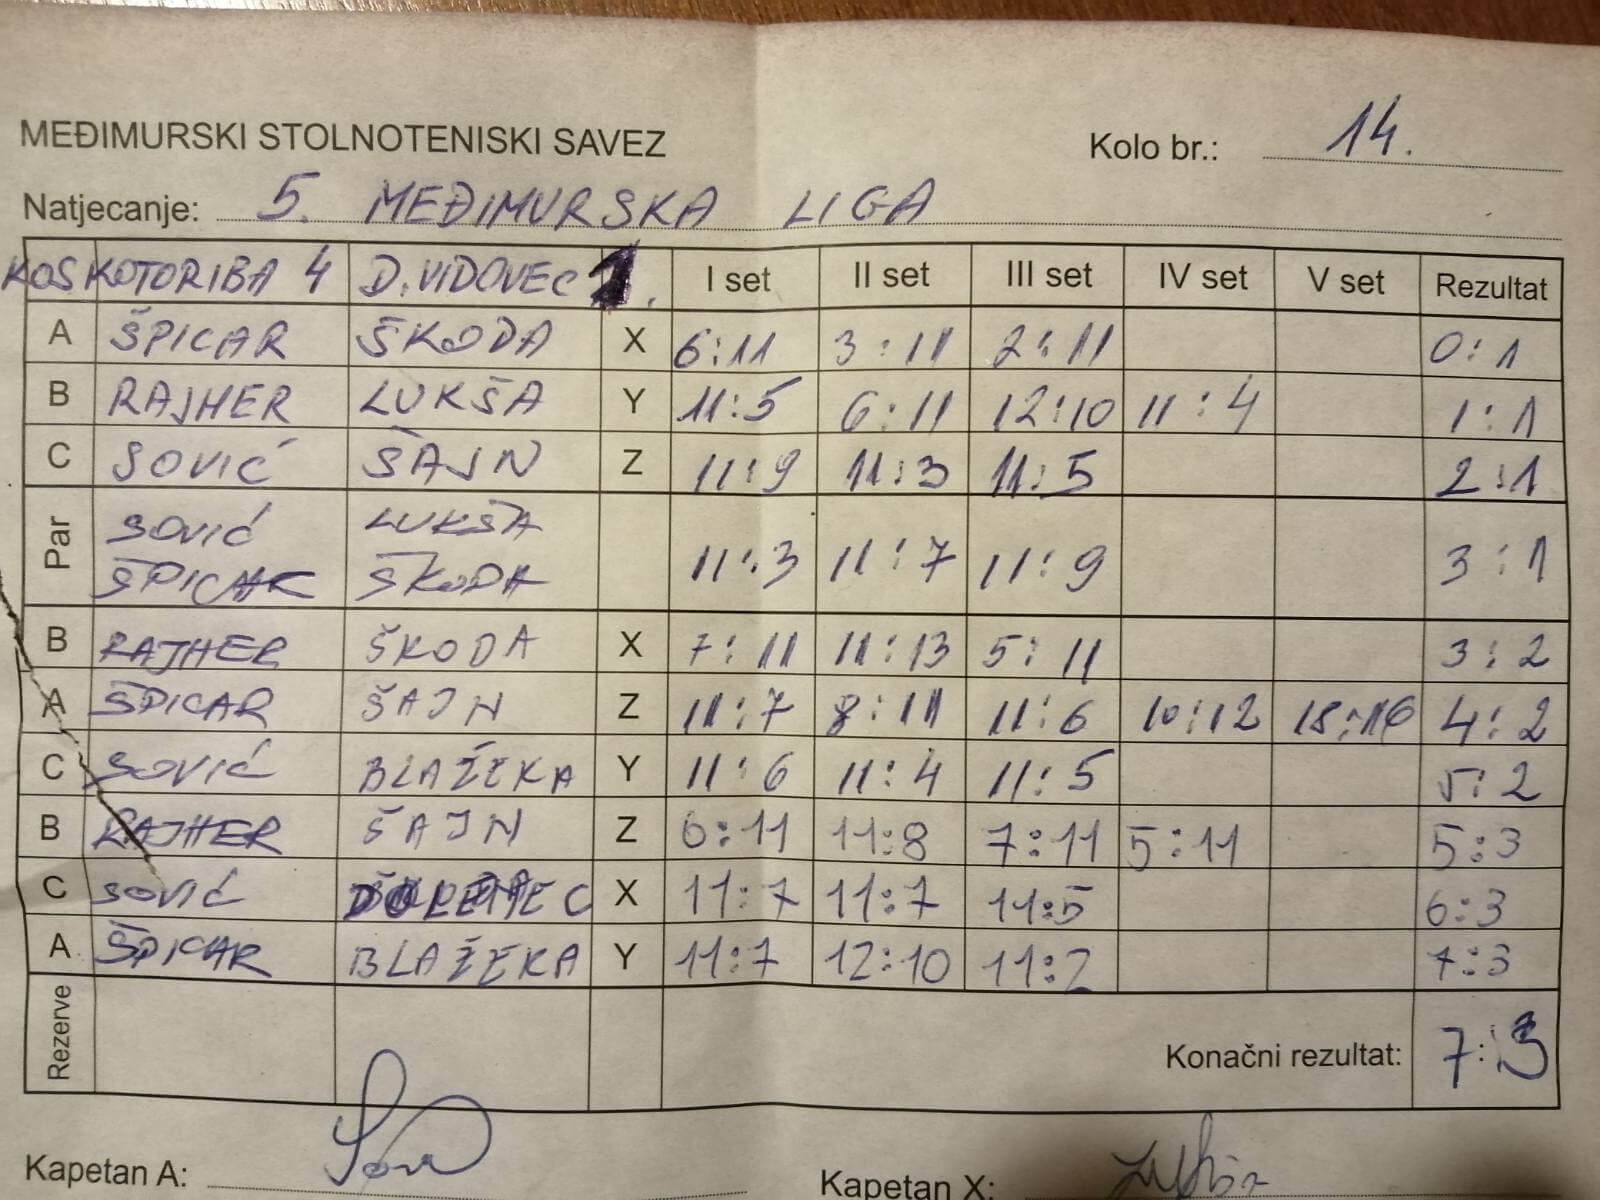 MEĐIMURSKI STOLNOTENISKI SAVEZ Kolo br.: 14.
Natjecanje: 5. MEĐIMURSKA LIGA
KOS KOTORIBA 4 D. VIDOVEC 1. I set II set III set IV set V set Rezultat
A ŠPICAR ŠKODA X 6:11 3:11 2:11 0:1
B RAJHER LUKŠA Y 11:5 6:11 12:10 11:4 1:1
C SOVIĆ ŠAJN Z 11:9 11:3 11:5 2:1
Par SOVIĆ LUKŠA
ŠPICAR ŠKODA 11:3 11:7 11:9 3:1
B RAJHER ŠKODA X 7:11 11:13 5:11 3:2
A ŠPICAR ŠAJN Z 11:7 8:11 11:6 10:12 18:16 4:2
C SOVIĆ BLAŽEKA Y 11:6 11:4 11:5 5:2
B RAJHER ŠAJN Z 6:11 11:8 7:11 5:11 5:3
C SOVIĆ X 11:7 11:7 11:5 6:3
A ŠPICAR BLAŽEKA Y 11:7 12:10 11:2 7:3
Rezerve Konačni rezultat: 7:3
Kapetan A: Kapetan X: